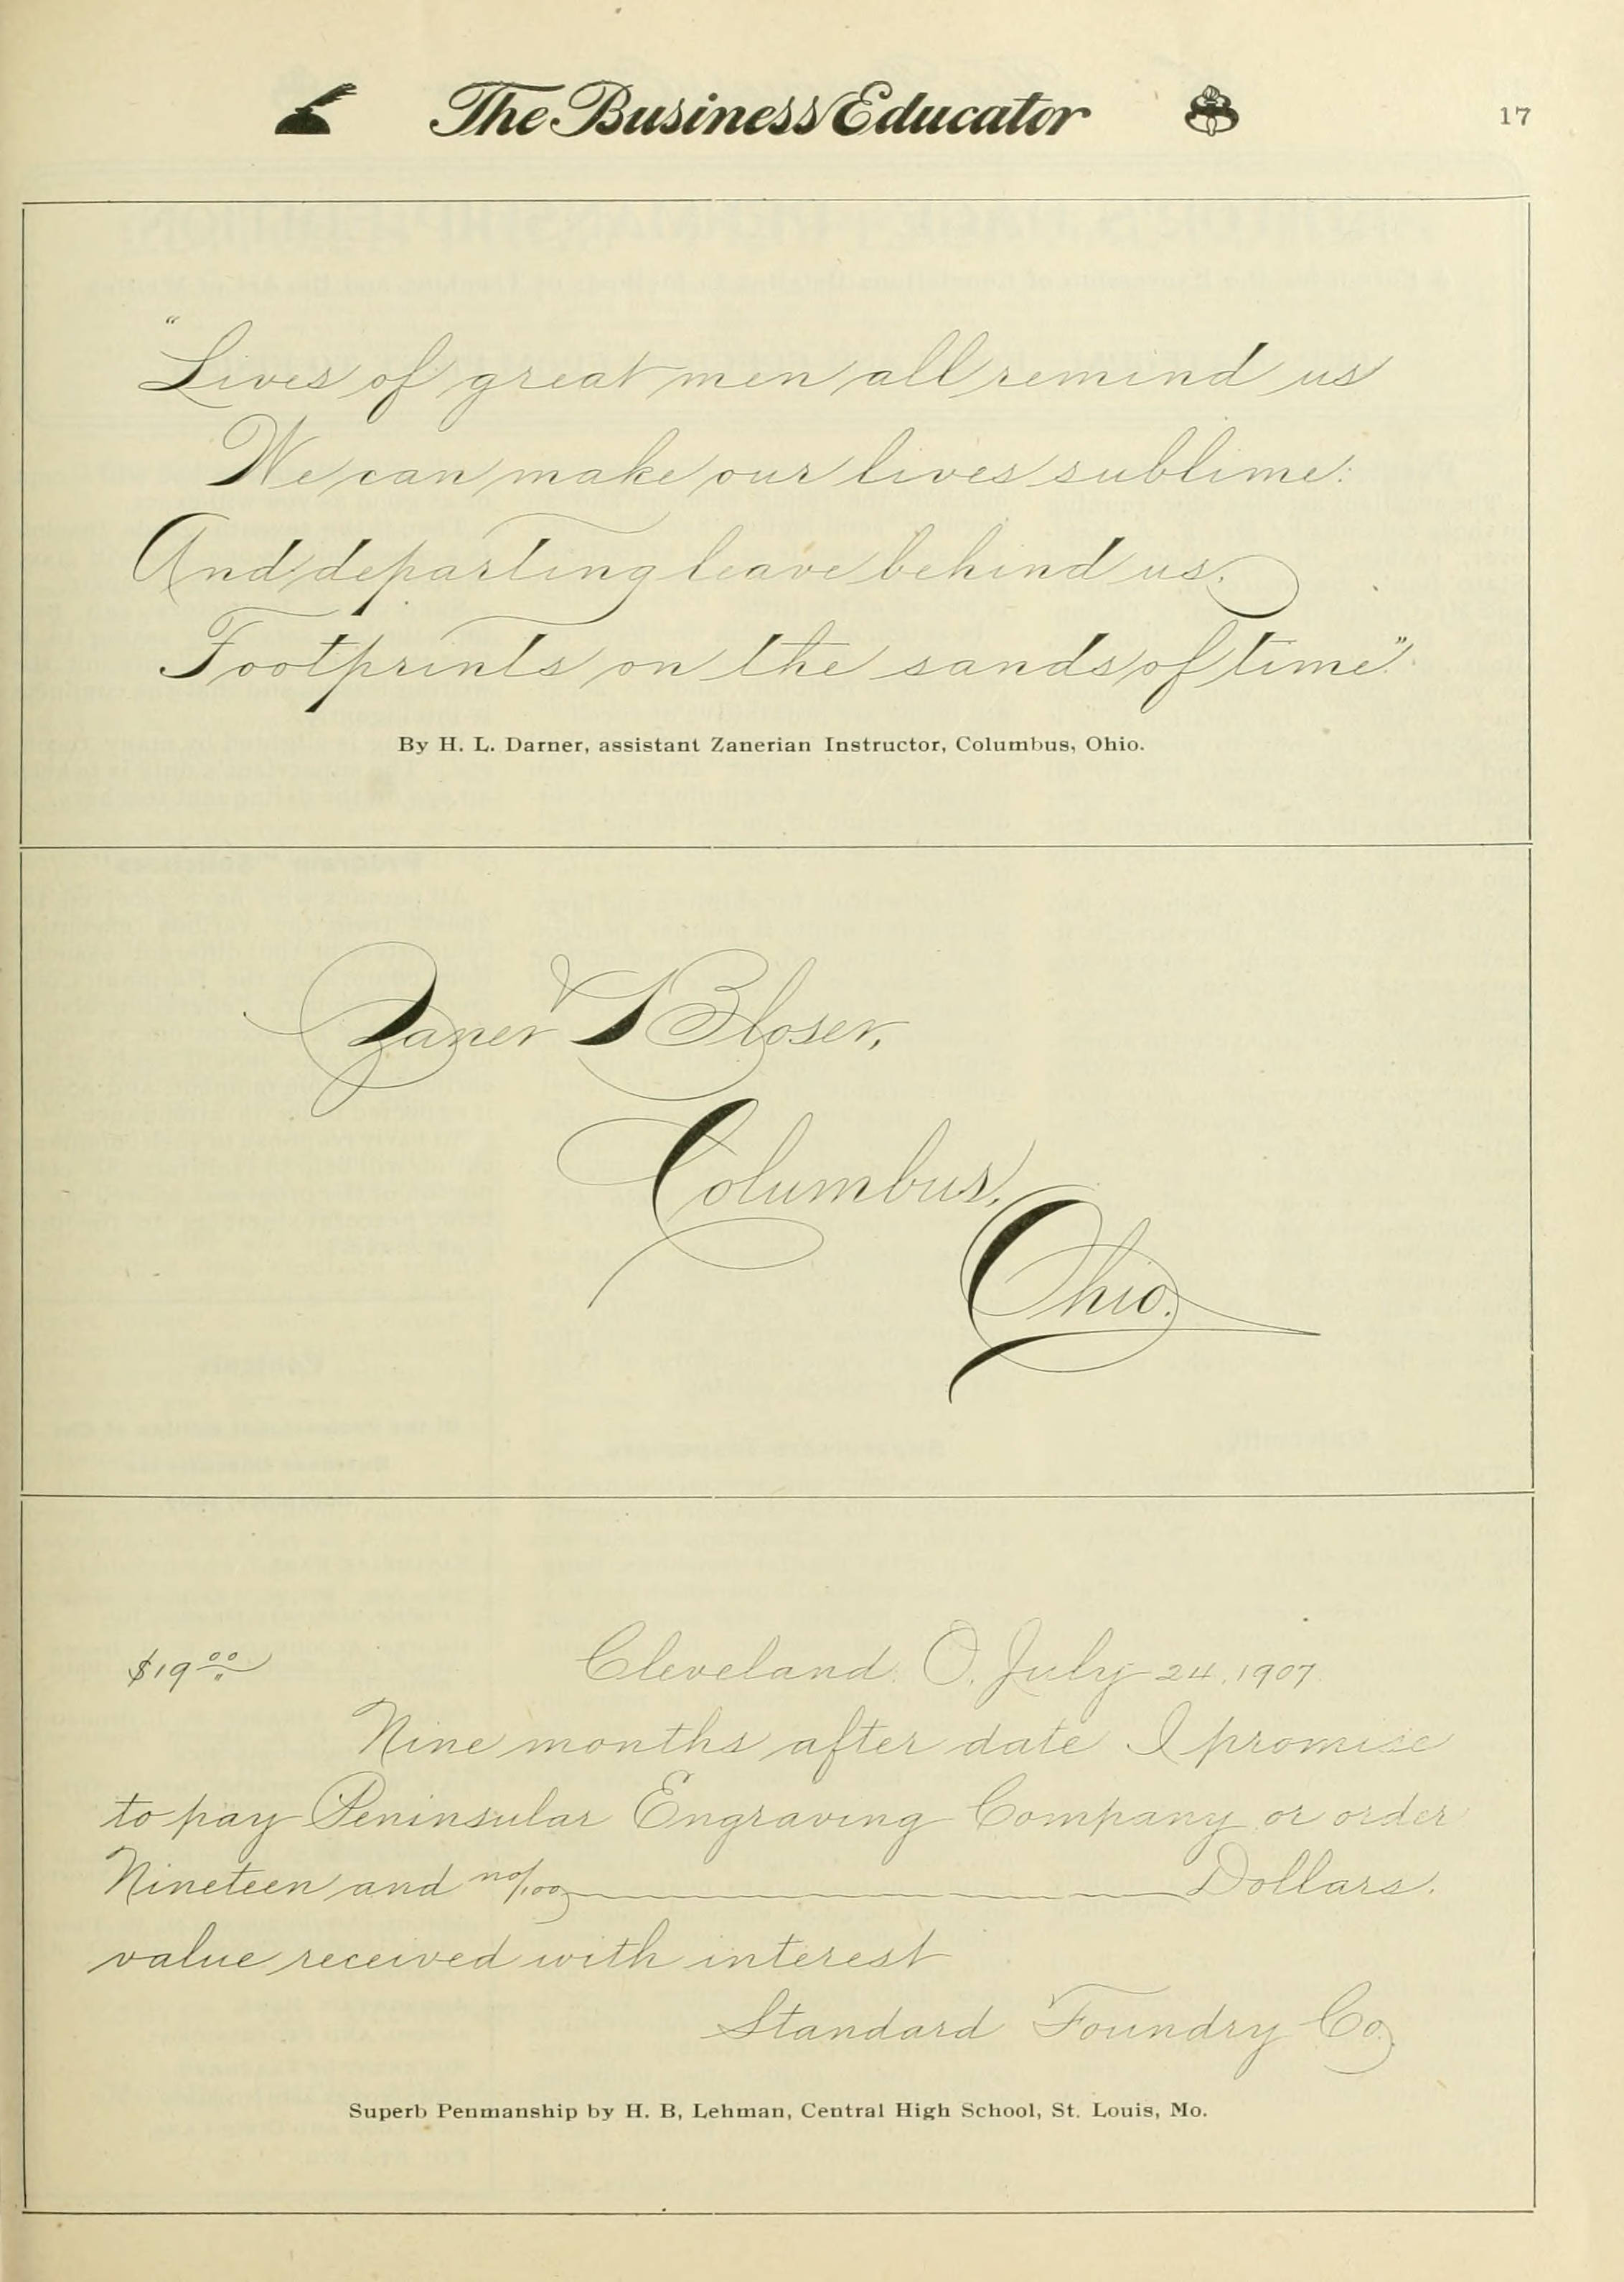 The Business Educator
17
"Lives of great men all remind us
We can make our lives sublime:
And departing leave behind us,
Footprints on the sands of time."
By H. L. Darner, assistant Zanerian Instructor, Columbus, Ohio.
Zaner & Bloser,
Columbus,
Ohio.
$19 00
Cleveland. O. July 24, 1907.
Nine months after date I promise
to pay Peninsular Engraving Company or order
Nineteen and no/100 Dollars.
value received with interest
Standard Foundry Co.
Superb Penmanship by H. B, Lehman, Central High School, St. Louis, Mo.